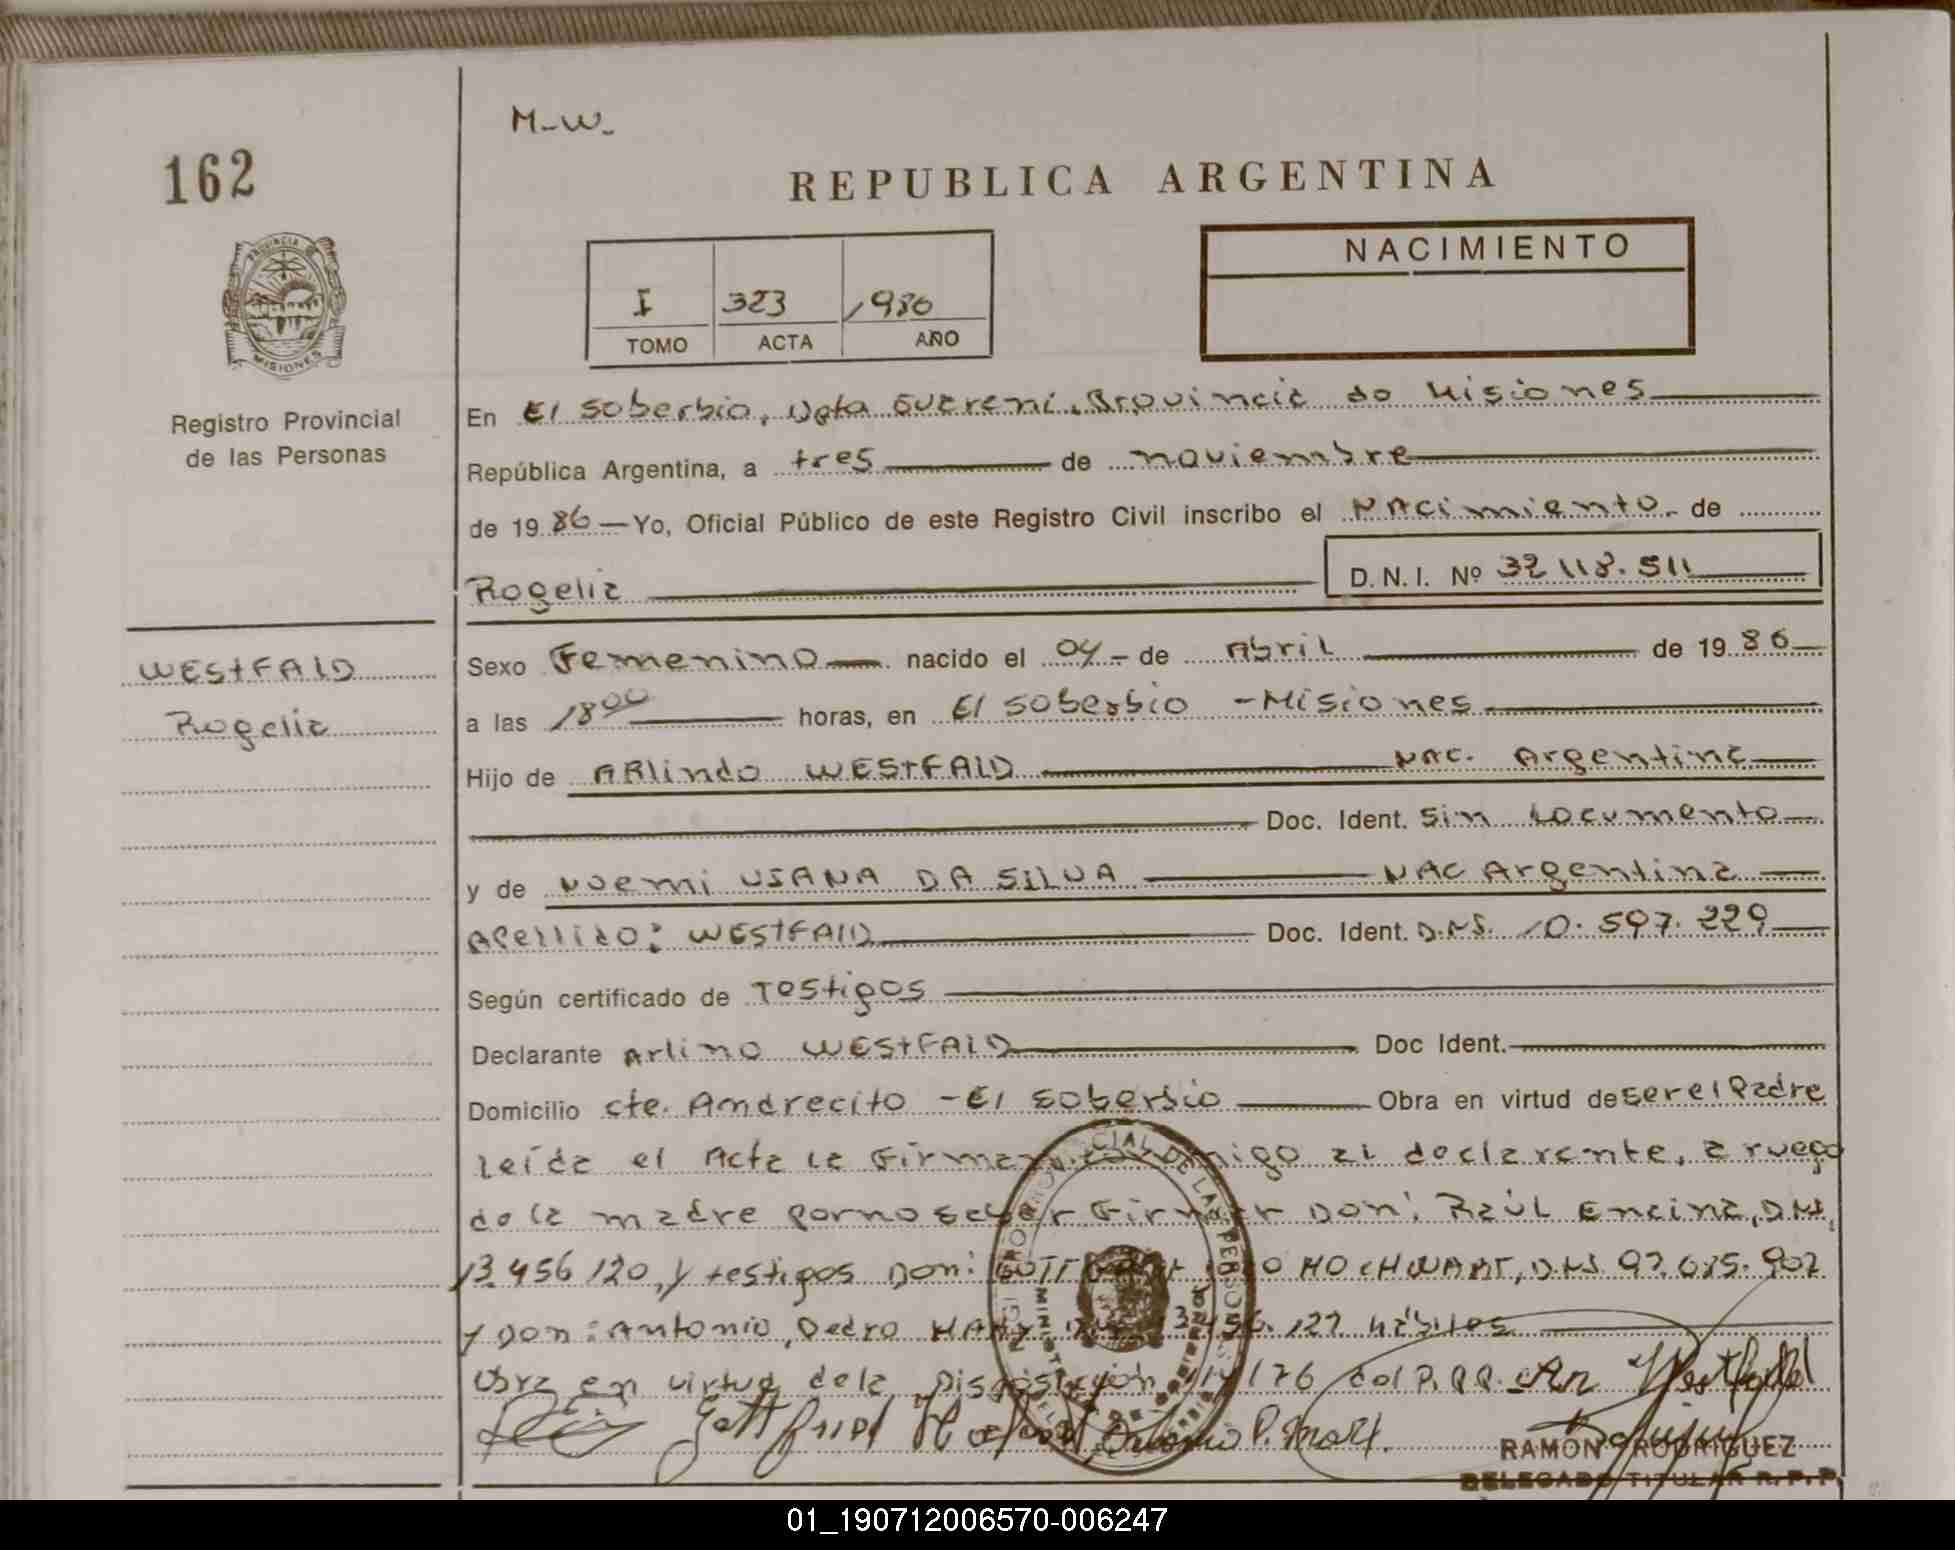 M-W-
162
REPUBLICA ARGENTINA
PROVINCIA DE
MISIONES
NACIMIENTO
I 323 1986
TOMO ACTA AÑO
Registro Provincial
de las Personas
En El Soberbio, Dpta Guarani, Provincia de Misiones
República Argentina, a tres de noviembre
de 1986 — Yo, Oficial Público de este Registro Civil inscribo el NAcimiento. de
Rogelia D.N.I. Nº 32 118.511
WEStFAlD
Rogelia
Sexo Femenino nacido el 04 - de Abril de 1986
a las 18 00 horas, en El Soberbio - Misiones
Hijo de ARlindo WEStFAlD NAC. Argentina
Doc. Ident. Sin Documento
y de Noemi USANA DA SILVA NAC Argentina
Apellido: WEStFAlD Doc. Ident. D.N.I. 10.597.229
Según certificado de Testigos
Declarante Arlino WEStFAlD Doc Ident.
Domicilio cte. Andrecito - El Soberbio Obra en virtud de ser el Padre
Leída el Acta la Firman conmigo el declarante, a ruego
de la madre por no saber Firmar Don: Raúl Encina, D.N.I.
13.456.120, y testigos Don: HOCHWART, D.N.I. 92.025.902
y Don: Antonio, Pedro 127 hábiles
Obra en virtud de la Disposición /176 del R.P.P.
Ar Westfald
Gottfried
Antonio P.
RAMON RODRIGUEZ
DELEGADO TITULAR R.P.P.
01_190712006570-006247